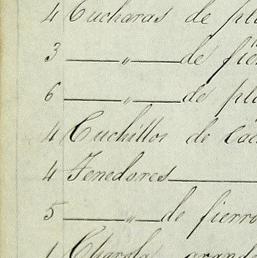 4 Cucharas de pla
3 — " — de fier
6 — " — de pla
4 Cuchillos de
4 Tenedores —
5 — " — de fierro
1 Charola grande